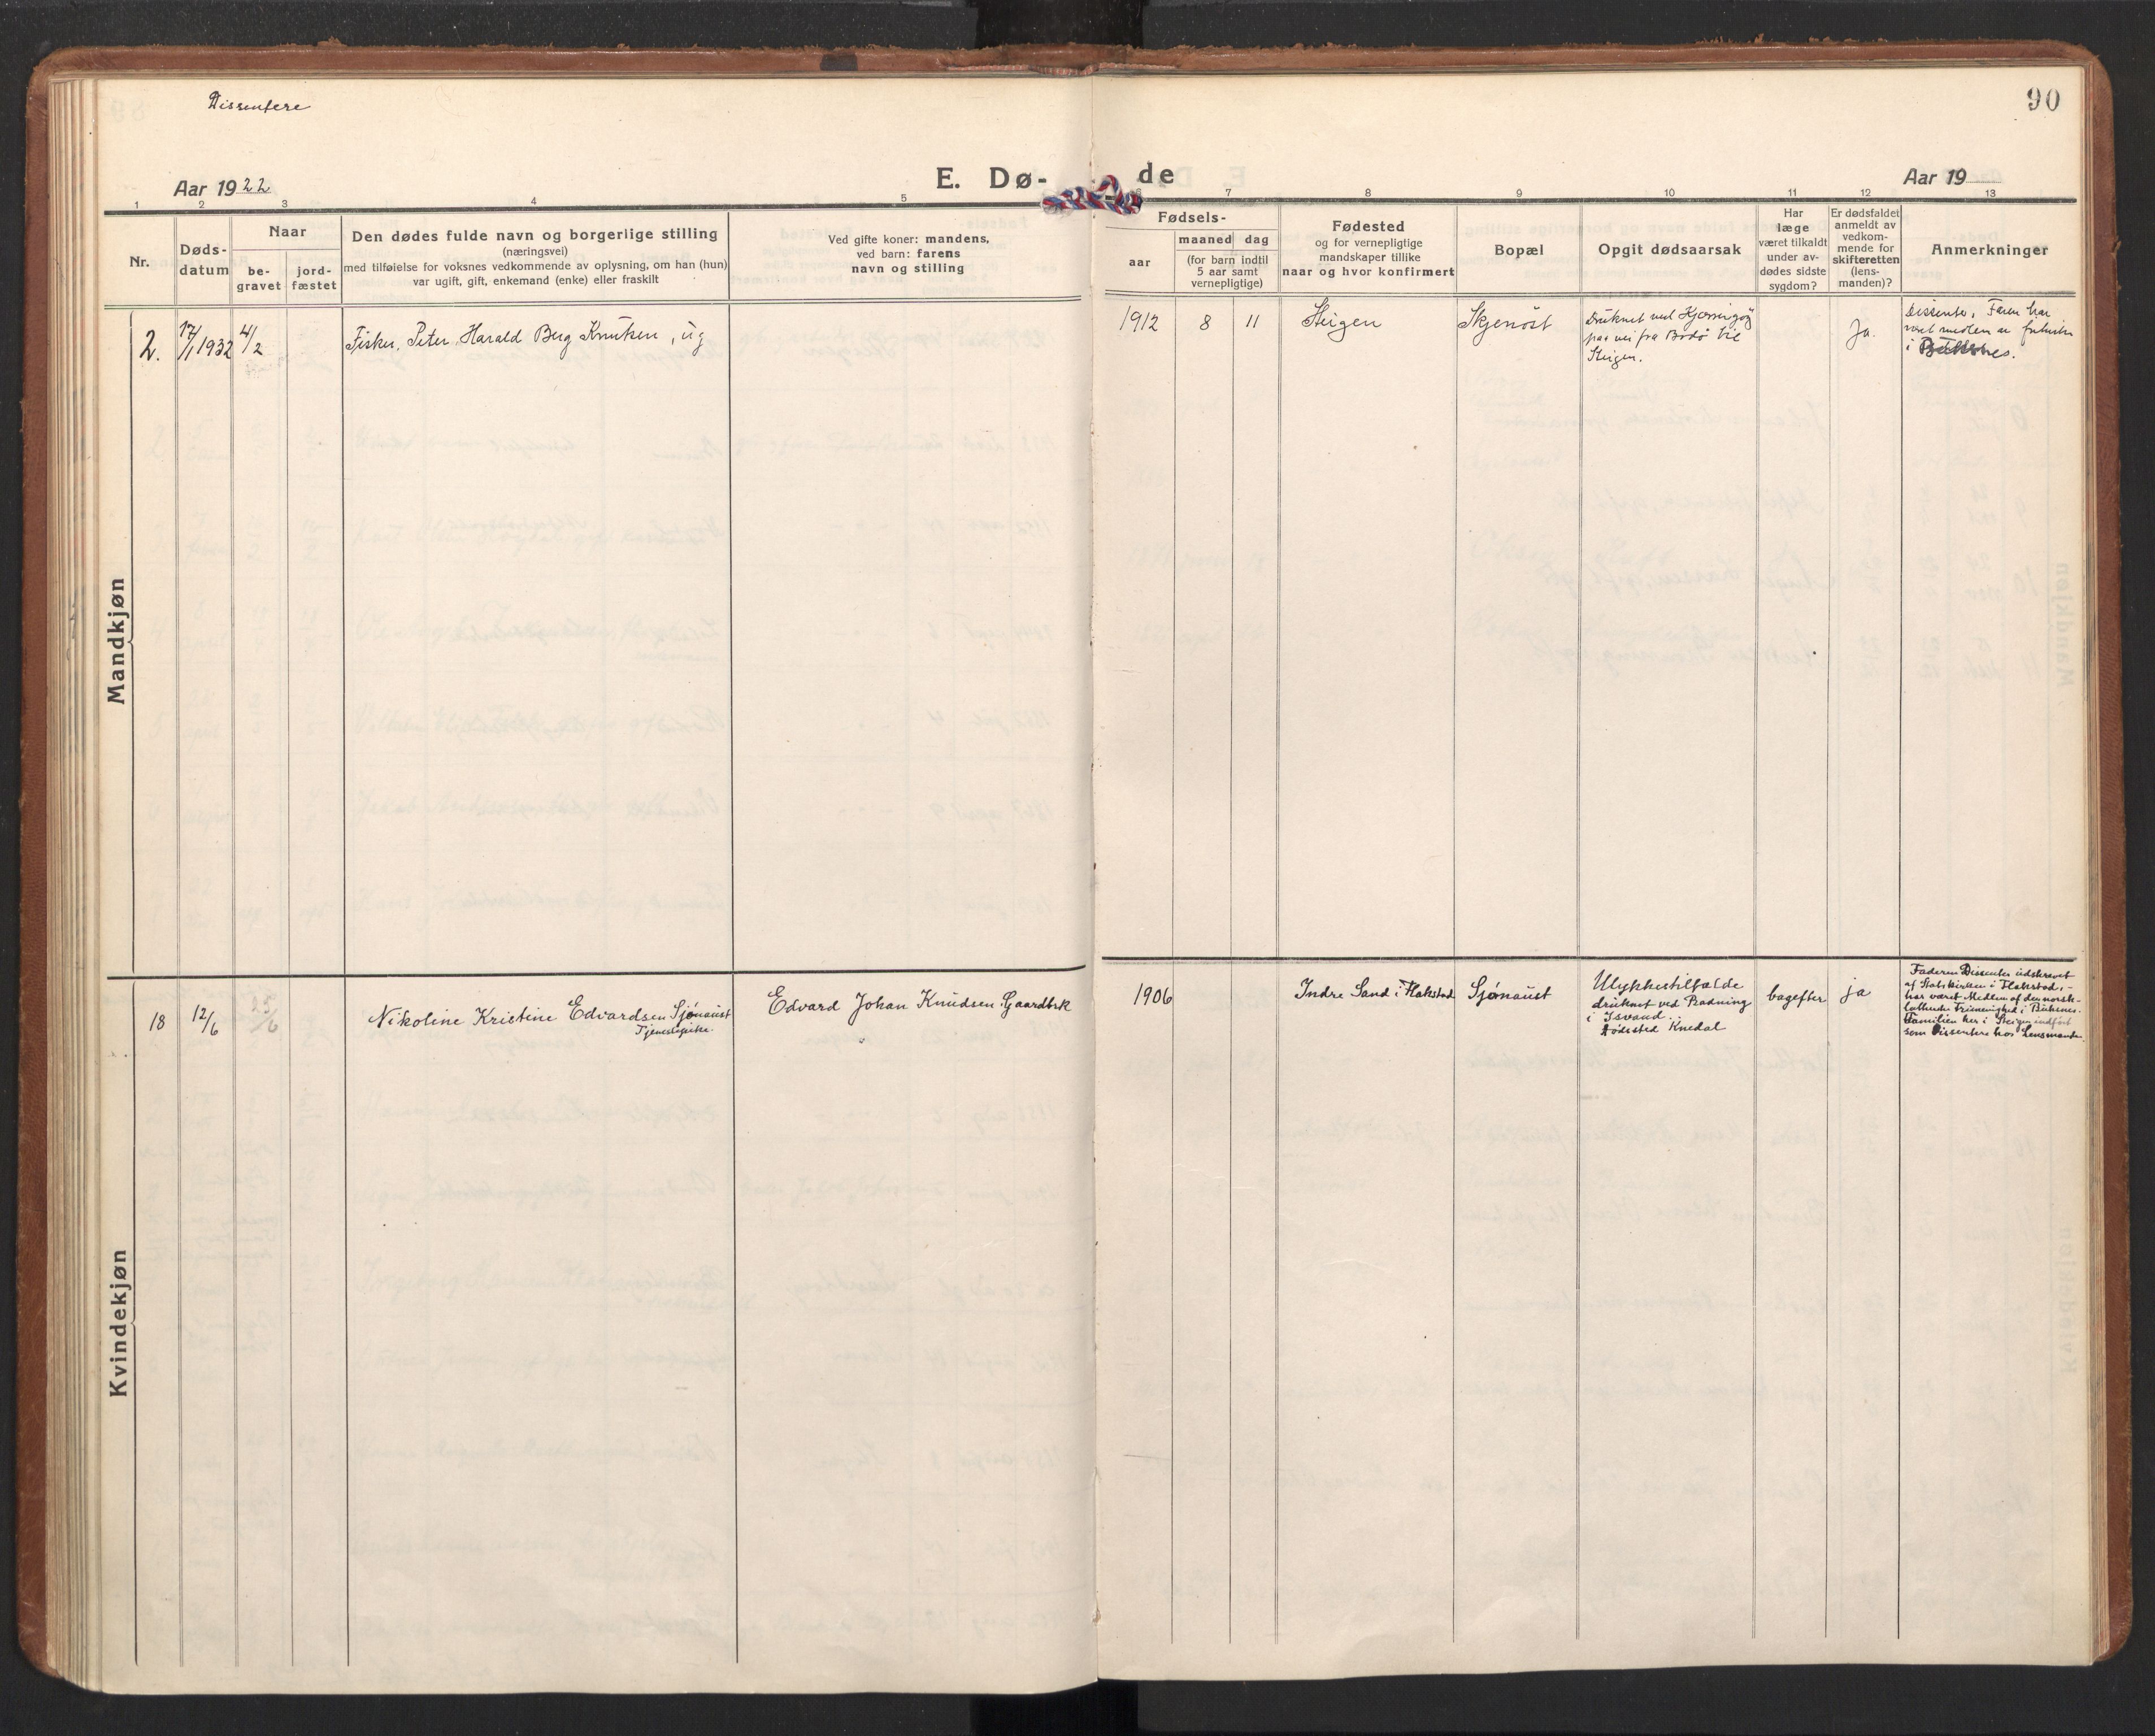 Dissentere
90
Aar 1922
E. Dø-
de
Aar 19
1 2 3 4 5 6 7 8 9 10 11 12 13
Nr.
Døds-
datum
Naar
be-
gravet
jord-
fæstet
Den dødes fulde navn og borgerlige stilling
(næringsvei)
med tilføielse for voksnes vedkommende av oplysning, om han (hun)
var ugift, gift, enkemand (enke) eller fraskilt
Ved gifte koner: mandens,
ved barn: farens
navn og stilling
Fødsels-
aar
maaned dag
(for barn indtil
5 aar samt
vernepligtige)
Fødested
og for vernepligtige
mandskaper tillike
naar og hvor konfirmert
Bopæl
Opgit dødsaarsak
Har
læge
været tilkaldt
under av-
dødes sidste
sygdom?
Er dødsfaldet
anmeldt av
vedkom-
mende for
skifteretten
(lens-
manden)?
Anmerkninger
Mandkjøn
2.
17/1 1932
4/2
Fisker, Peter Harald Berg Knutsen, ug
1912
8
11
Steigen
Skjenöst
Druknet ved Kjerringöy
paa vei fra Bodö til
Steigen.
Ja.
Dissenter, Faren har
vært medlem av
i Buksnes.
Kvindekjøn
18
12/6
25/6
Nikoline Kristine Edvardsen Sjønaust
Tjenestepike.
Edvard Johan Knudsen Gaardbrk
1906
Indre Sand i Flakstad
Sjønaust
Ulykkestilfælde
druknet ved Badning
i Isvand.
Dødssted Knedal
bagefter
ja
Faderen Dissenter udskrevet
af Statskirken i Flakstad,-
har været Medlem af den norsk-
lutherske Frimenighed i Buksnes.
Familien her i Steigen indført
som Dissentere hos Lensmanden.